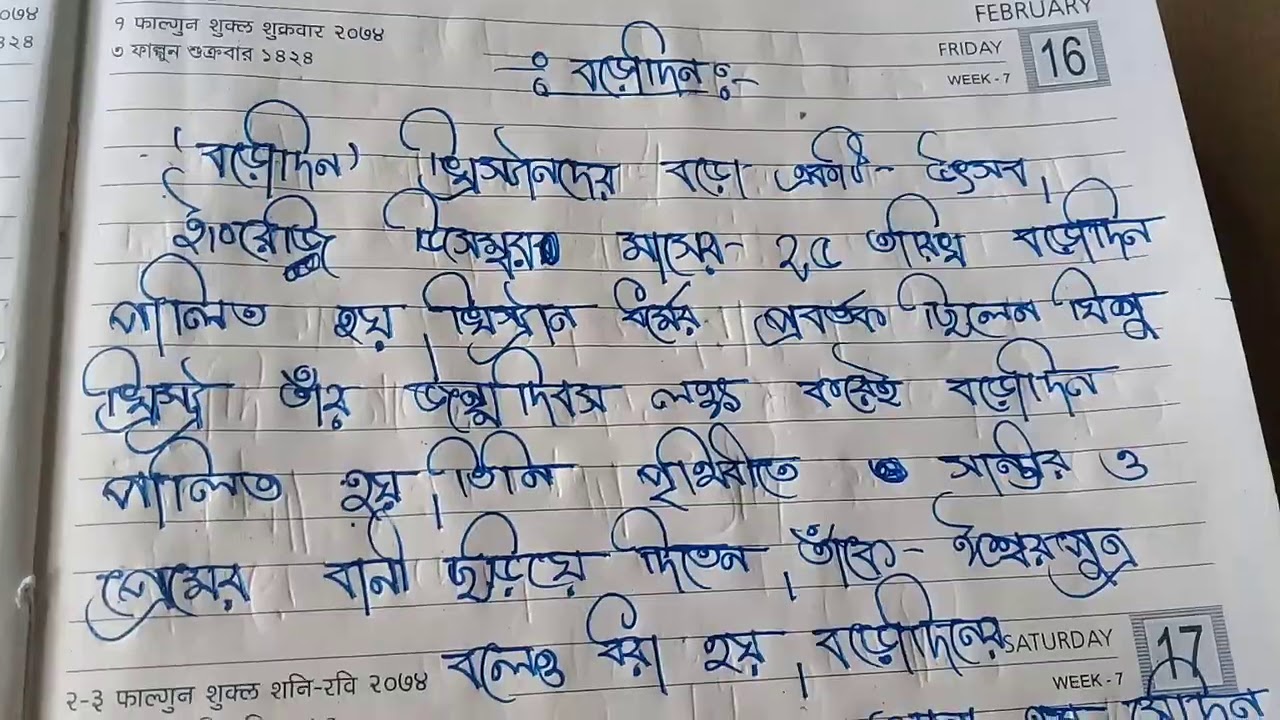 ०७४
४२४
१ फाल्गुन शुक्ल शुक्रवार २०७४
৩ ফাল্গুন শুক্রবার ১৪২৪
FEBRUARY
FRIDAY
WEEK - 7
16
ঃ বড়োদিন ঃ-
'বড়োদিন' খ্রিস্টানদের বড়ো একটি- উৎসব।
ইংরেজি ডিসেম্বর মাসের- ২৫ তারিখ বড়োদিন
পালিত হয়। খ্রিস্টান ধর্মের প্রবর্তক ছিলেন যিশু
খ্রিস্ট্রে তাঁর জন্মদিবস লক্ষ্য করেই বড়োদিন
পালিত হয়। তিনি পৃথিবীতে সান্তির ও
প্রেমের বানী ছড়িয়ে দিতেন। তাঁকে- ঈশ্বরপুত্র
বলেও ধরা হয়। বড়োদিনের
SATURDAY
WEEK - 7
17
२-३ फाल्गुन शुक्ल शनि-रवि २०७४